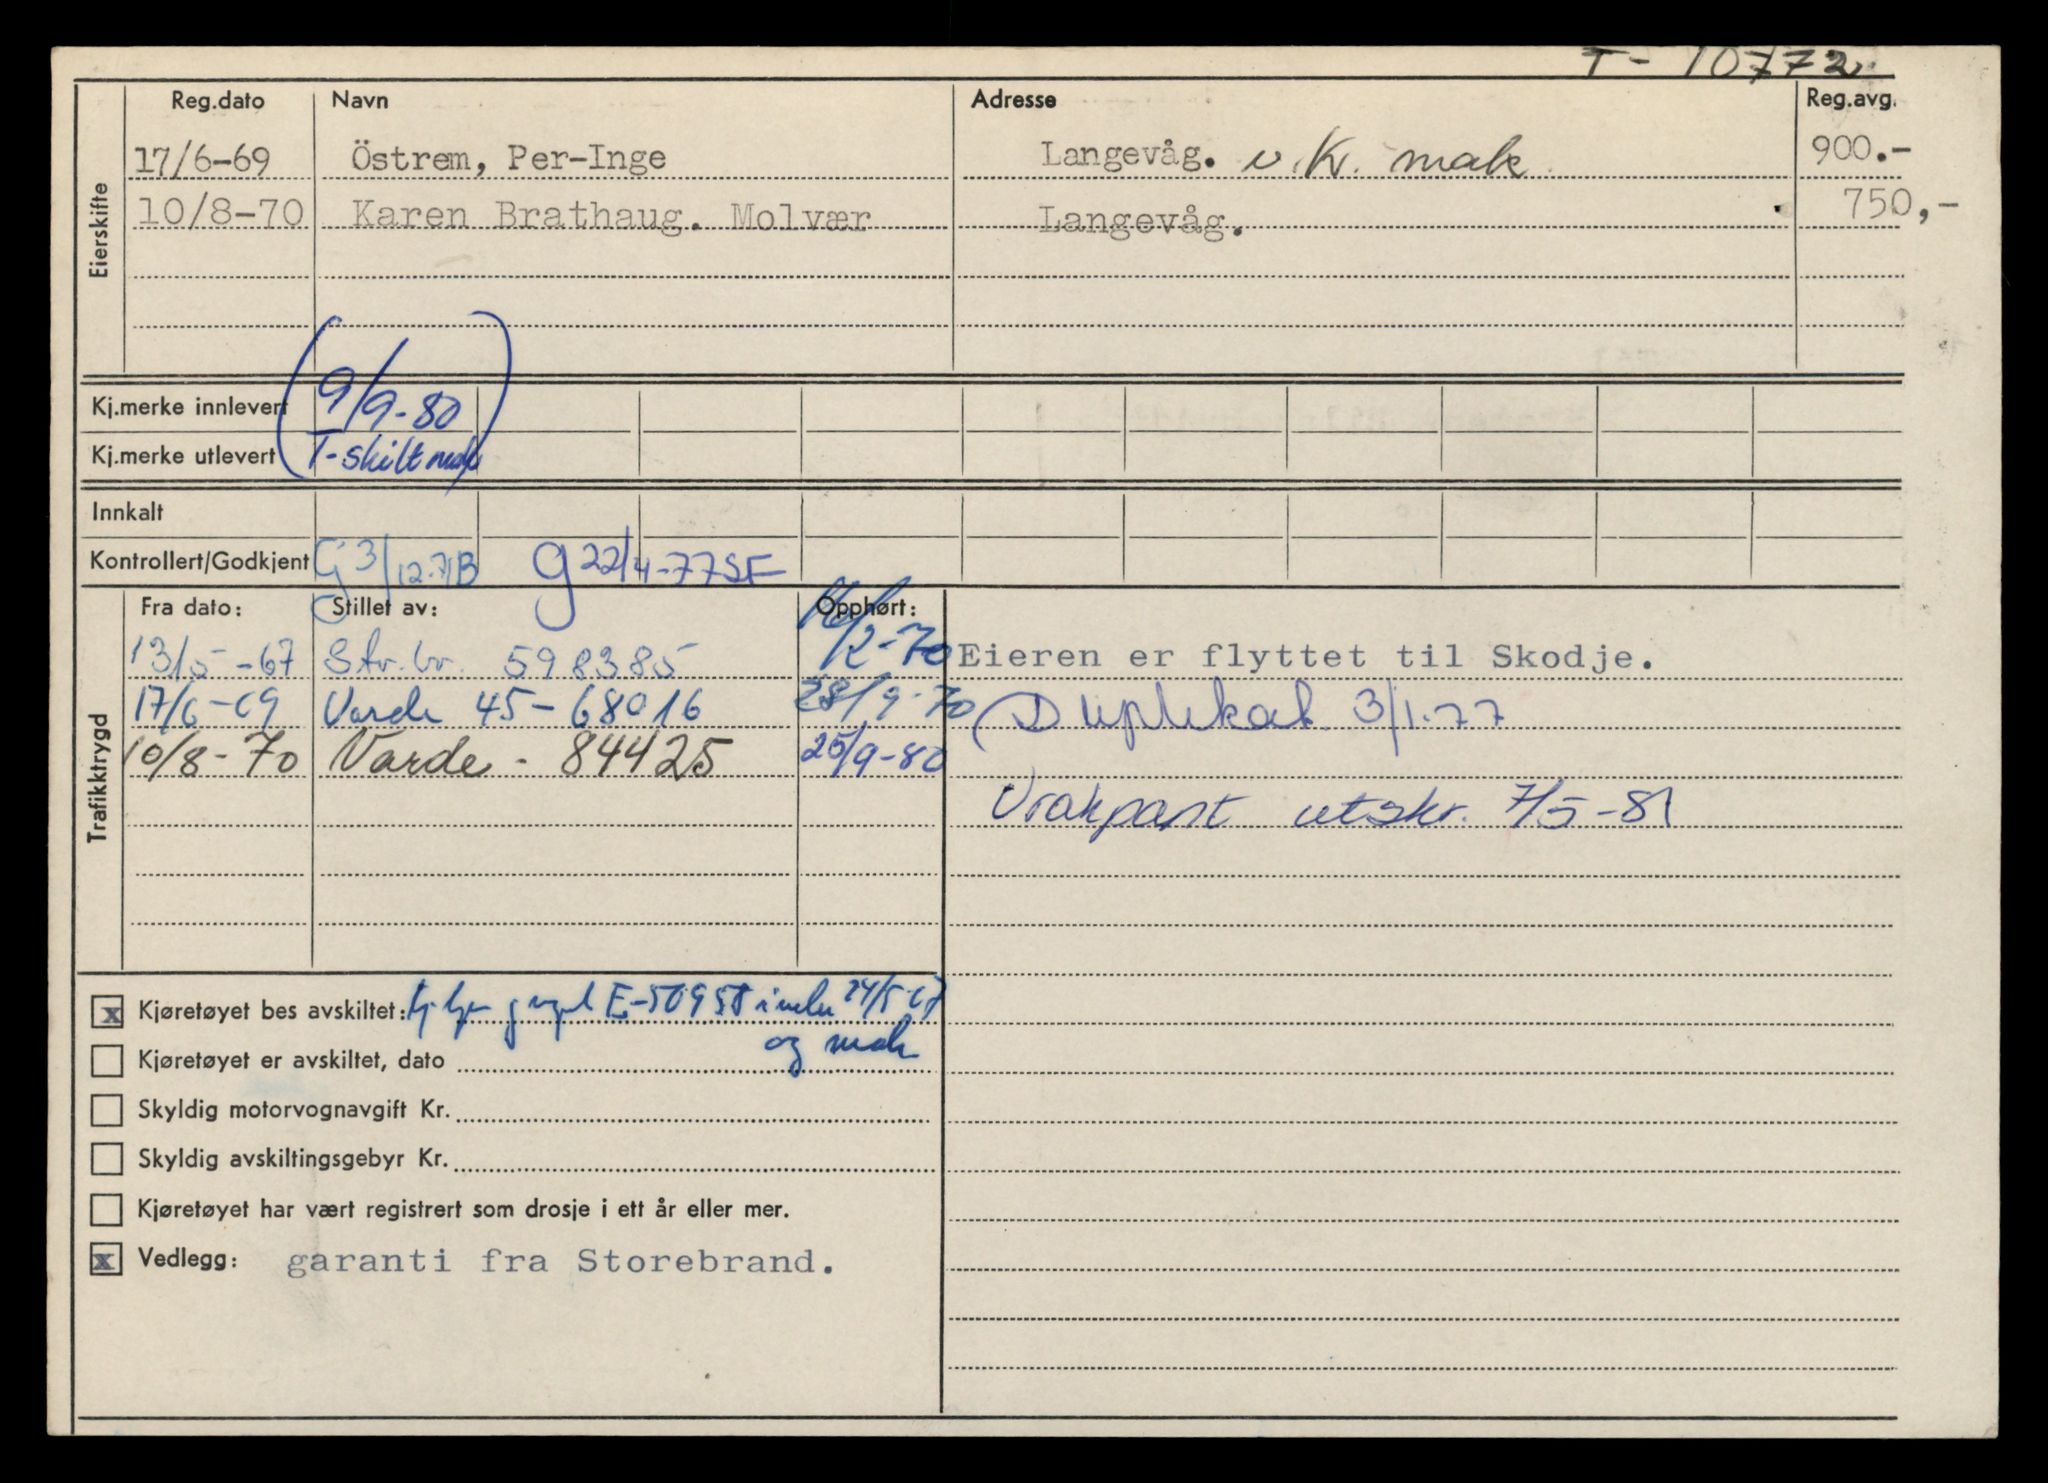 T- 10772
Reg.dato Navn Adresse Reg.avg.
Eierskifte
17/6-69 Östrem, Per-Inge Langevåg. v.Kr. mak 900.-
10/8-70 Karen Brathaug. Molvær Langevåg. 750,-
Kj.merke innlevert (9/9-80
Kj.merke utlevert T-skilt mak)
Innkalt
Kontrollert/Godkjent G 3/12-71B g 22/4-77 SF
Trafiktrygd
Fra dato: Stillet av: Opphørt:
13/5-67 Str.br. 598385 16/2-70 Eieren er flyttet til Skodje.
17/6-69 Varde 45-68016 28/9-70 Duplikat 3/1-77
10/8-70 Varde - 84425 25/9-80
Vrakpant utskr. 7/5-81
x Kjøretøyet bes avskiltet: E-50958 24/5-67
og mak
Kjøretøyet er avskiltet, dato
Skyldig motorvognavgift Kr.
Skyldig avskiltingsgebyr Kr.
Kjøretøyet har vært registrert som drosje i ett år eller mer.
x Vedlegg: garanti fra Storebrand.